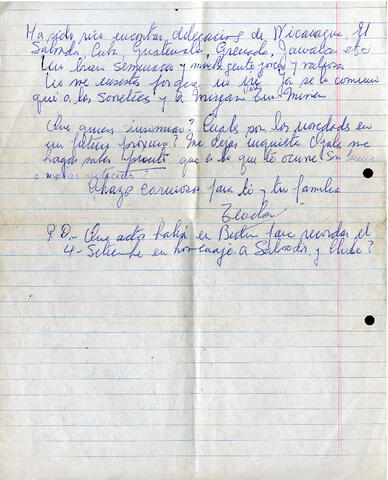 Ha sido rico encontrar delegacions de Nicaragua, El
Salvador, Cuba, Guatemala, Grenada, Jamaica etc
Un buen Seminario y mucha gente joven y valiosa
No me insista porque no iré, ya se lo comuniqué
que a los Soviéticos y a
Que quieres insinuar? Cuales son las novedades en
un futuro próximo? Me dejas inquieta. Ojala me
hagas saber pronto que es lo que te ocurre! Son buenas
o malas noticias?
Abrazo cariñoso para ti y tu familia
P.D.- Que actos habrá en Boston para recordar el
4 - Setiembre en homenaje a Salvador y Chile?